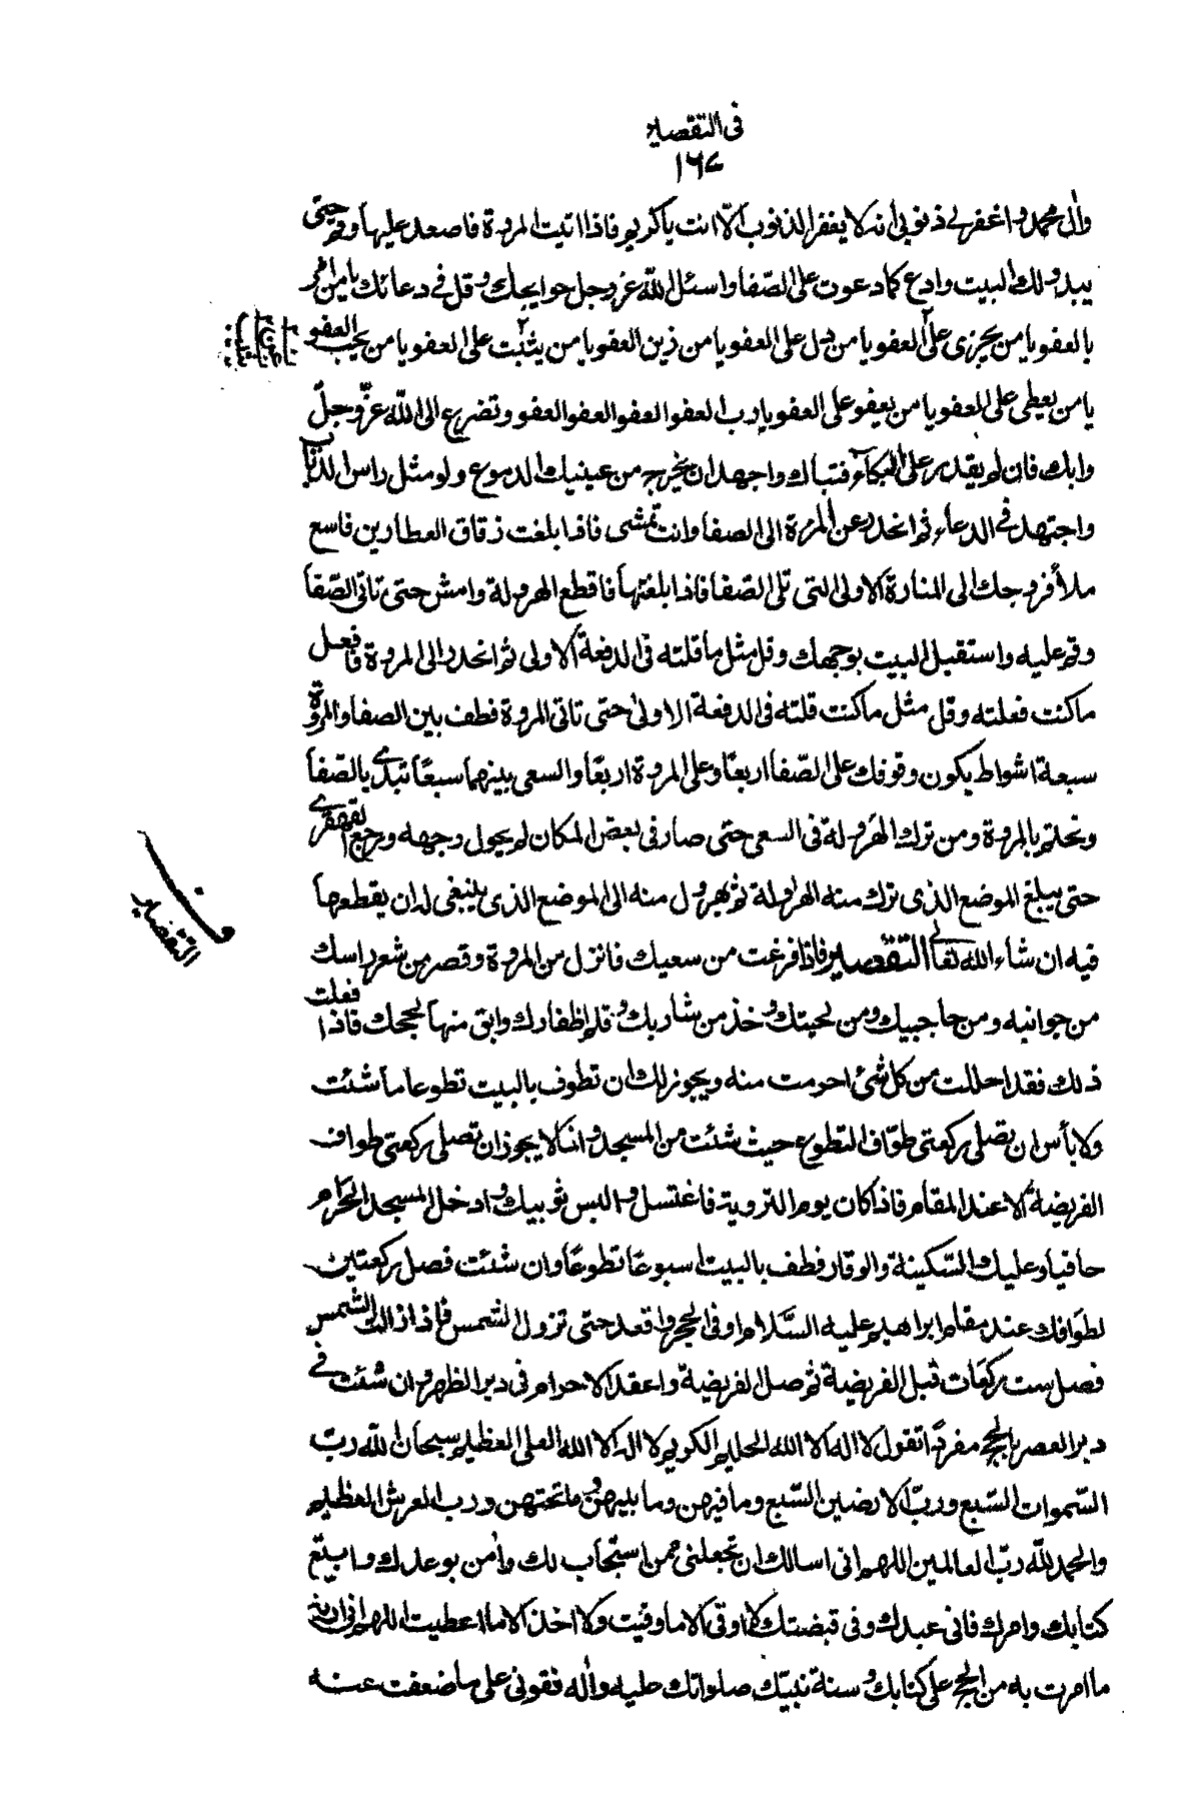 فى التقصير
١٦٧
وال محمد واغفر لى ذنوبى انه لا يغفر الذنوب الّا انت ياكريم فاذا اتيت المروة فاصعد عليها وقم حتى
يبدو لك البيت وادع كما دعوت على الصّفا واسئل اللّه عز وجل حوايجك وقل فى دعائك يا من امر
بالعفو يا من يجزى على العفو يا من دل على العفو يا من زين العفو يا من يثيب على العفو يا من يحب العفو
يا من يعطى على العفو يا من يعفو على العفو يا رب العفو العفو العفو العفو وتضرع الى اللّه عزّ وجلّ
وابك فان لم يقدر على البكآء فتباك واجهد ان يخرج من عينيك الدموع ولو مثل راس الذباب
واجتهد فى الدعاء ثم انحدر عن المروة الى الصفا وانت تمشى فاذا بلغت زقاق العطارين فاسع
ملأ فروجك الى المنارة الاولى التى تلى الصّفا فاذا بلغتها فاقطع الهرولة وامش حتى تاتى الصّفا
وقم عليه واستقبل البيت بوجهك وقل مثل ما قلته فى الدفعة الاولى ثم انحدر الى المروة فافعل
ما كنت فعلته وقل مثل ما كنت قلته فى الدفعة الاولى حتى تاتى المروة فطف بين الصفا والمروة
سبعة اشواط يكون وقوفك على الصّفا اربعًا وعلى المروة اربعًا والسعى بينهما سبعًا تبدى بالصّفا
وتختم بالمروة ومن ترك الهَرولة فى السعى حتى صار فى بعض المكان لم يحول وجهه ورجع القهقرى
حتى يبلغ الموضع الذى ترك منه الهرولة ثم يهرول منه الى الموضع الذى ينبغى له ان يقطعها
فيه ان شاء الله تعالى التقصير فاذا فرغت من سعيك فانزل من المروة وقصر من شعر راسك
من جوانبه ومن حاجبيك ومن لحيتك وخذ من شاربك وقلم اظفارك وابق منها لحجك فاذا فعلت
ذلك فقد احللت من كل شئ احرمت منه ويجوز لك ان تطوف بالبيت تطوعا ما شئت
ولا بأس ان تصلى ركعتى طوّاف التطوع حيث شئت من المسجد وانما لا يجوز ان تصلى ركعتى طواف
الفريضة الا عند المقام فاذا كان يوم التروية فاغتسل والبس ثوبيك وادخل المسجد الحرام
حافيا وعليك السّكينة والوقار فطف بالبيت اسبوعًا تطوعًا وان شئت فصل ركعتين
لطوَافك عند مقام ابراهيم عليه السَّلام او فى الحجر واقعد حتى تزول الشمس فاذا زالت الشمس
فصل ست ركعَات قبل الفريضة ثم صل الفريضة واعقد الاحرام فى دبر الظهر وان شئت فى
دبر العصر بالحج مفردًا تقول لا اله الا الله الحليم الكريم لا اله الا الله العلى العظيم سبحان اللّه ربّ
السّموات السّبع وربّ الارضين السّبع وما فيهن وما بينهن وما تحتهن ورب العرش العظيم
والحمد للّه ربّ العالمين اللهم انى اسالك ان تجعلنى ممن استجاب لك وامن بوعدك واتبع
كتابك وامرك فانى عبدك وفى قبضتك لا اوقى الا ما وقيت ولا اخذ الا ما اعطيت اللهم انى اريد
ما امرت به من الحج على كتابك وسنة نبيّك صلواتك عليه واله فقونى على ما ضعفت عنه
التقصير